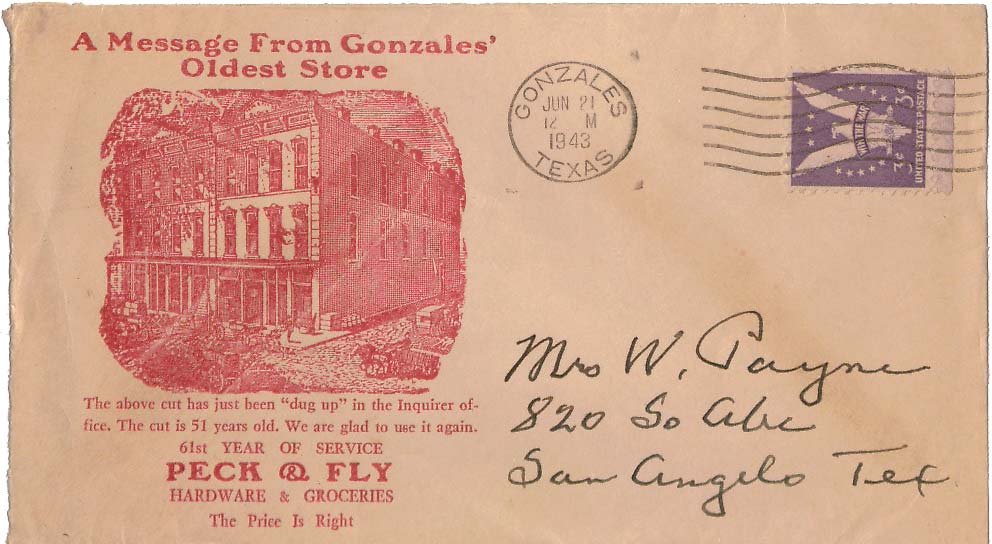 A Message From Gonzales'
Oldest Store
The above cut has just been "dug up" in the Inquirer of-
fice. The cut is 51 years old. We are glad to use it again.
61st YEAR OF SERVICE
PECK & FLY
HARDWARE & GROCERIES
The Price Is Right
GONZALES
JUN 21
12 M
1943
TEXAS
WIN THE WAR
3¢ 3¢
UNITED STATES POSTAGE
Mrs W. Payne
820 So Abe
San Angelo Tex.